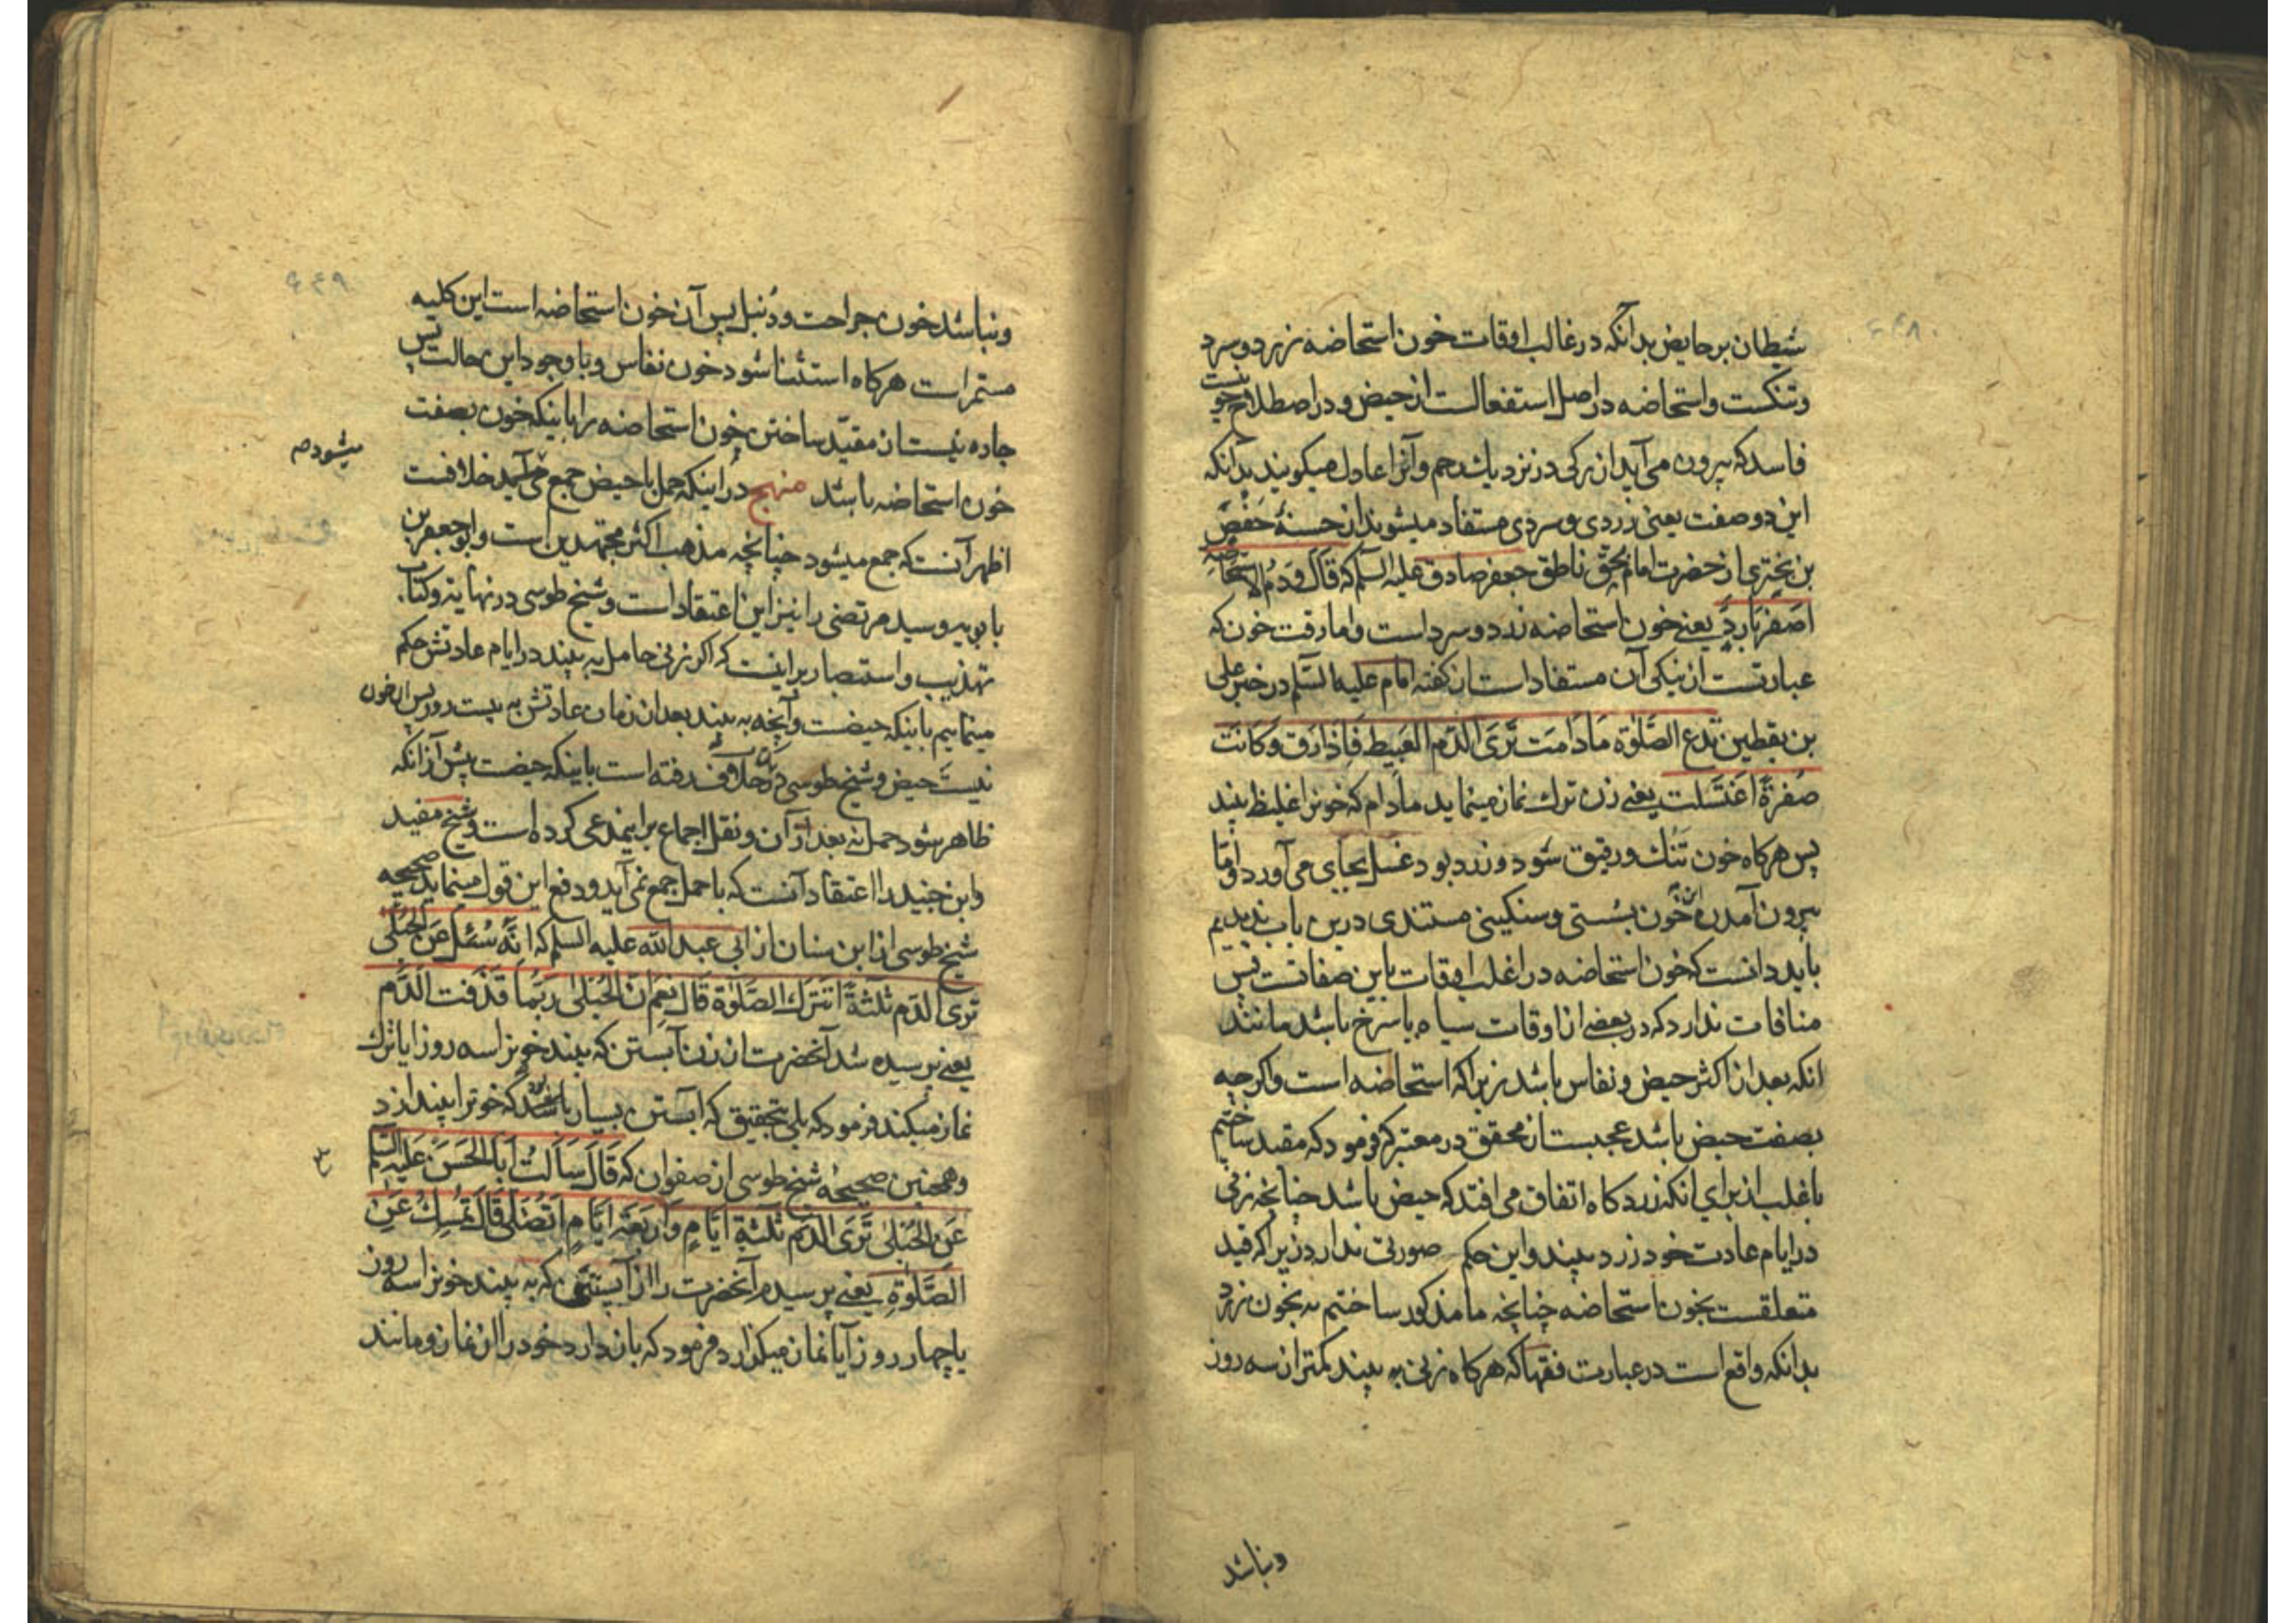 شیطان بر حایض بدانکه در غالب اوقات خون استحاضه زرد و سرد
و تنکست و استحاضه در اصل استفعالست از حیض و در اصطلاح خونیست
فاسد که بیرون می آید از رکی در نزدیک رحم و آنرا عادل میکویند بدانکه
این دو صفت یعنی زردی و سردی مستفاد میشوند از حسنهٔ حَفْص
بن بختری از حضرت امام بحق ناطق جعفر صادق علیه السلم که قَالَ وَدَمُ الاِسْتِحَاضَةِ
اَصْفَرُ بَارِدٌ یعنی خون استحاضه زرد و سرد است و اما رقت خون که
عبارتست از تنکی آن مستفاد است از کفته امام علیه السّلم در خبر علی
بن یقطین تَدَعُ الصَّلوٰةَ مَادَامَتْ تَرَی الدَّمَ العَبِیطَ فَاِذَا رَقَّ وَکَانَتْ
صُفْرَةً اغْتَسَلَت یعنی زن ترک نماز مینماید مادام که خونرا غلیظ بیند
پس هرکاه خون تنک و رقیق شود و زرد بود غسل بجای می آورد و امّا
بیرون آمدن این خون بسُستی و سنکینی مستندی درین باب ندیدیم
باید دانست که خون استحاضه در اغلب اوقات باین صفاتست پس
منافات ندارد که در بعضی از اوقات سیاه یا سرخ باشد مانند
انکه بعد از اکثر حیض و نفاس باشد زیراکه استحاضه است و اکرچه
بصفت حیض باشد عجبست از محقق در معتبر که فرمود که مقید ساختیم
باغلب از برای انکه زرد کاه اتفاق می افتد که حیض باشد چنانچه زنی
در ایام عادت خود زرد بیند و این حکم صورتی ندارد زیراکه قید
متعلقست بخون استحاضه چنانچه ما مذکور ساختیم نه بخون زرد
بدانکه واقع است در عبارت فقها که هرکاه زنی به بیند کمتر از سه روز
ونباشد
ونباشد خون جراحت و دُنبل پس آن خون استحاضه است این کلیه
مستمر است هرکاه استثنا شود خون نفاس و با وجود این حالت پس
چاره نیست از مقیّد ساختن خون استحاضه را باینکه خون بصفت
خون استحاضه باشد منهج در اینکه حمل با حیض جمع می آید خلافست
میشود صه
اظهر آنست که جمع میشود چنانچه مذهب اکثر مجتهدین است و ابو جعفر بن
بابویه و سید مرتضی را نیز این اعتقاد است و شیخ طوسی در نهایه و کتاب
تهذیب و استبصار براینست که اکر زنی حامل به بیند در ایام عادتش حکم
مینماییم باینکه حیضست و آنچه به بیند بعد از زمان عادتش به بیست روز پس ان خون
نیست حیض و شیخ طوسی در خلاف رفته است باینکه حیضست پیش از انکه
ظاهر شود حمل نه بعد از آن و نقل اجماع براینمدعی کرده است و شیخ مفید
و ابن جنید را اعتقاد آنست که با حمل جمع نمی آید و دفع این قول مینماید صحیحه
شیخ طوسی از ابن سنان از ابی عبد الله علیه السلم که انّه سُئل عَنِ الحُبْلی
تَری الدّم ثلثةً اَتَتْرَکُ الصَّلوٰةَ قَالَ نعم اِنّ الحُبْلی رُبَّمَا قَذَفَت الدَّم
یعنی پرسیده شد آنحضرت از زن آبستن که بیند خونرا سه روز ایا ترک
نماز میکند فرمود که بلی بتحقیق که آبستن بسیار باشد که خونرا بیندازد
وهمچنین صحیحهٔ شیخ طوسی از صفوان که قَالَ سَاَلْتُ اَبَا الحَسَنِ عَلَیْهِ السّلم
عَنِ الحُبْلیٰ تَرَی الدَّمَ ثَلٰثَةَ ایّامٍ وَاَرْبَعَةَ ایّامٍ اَتُصَلّی قَالَ تُمْسِکُ عَنِ
الصَّلوٰةِ یعنی پرسیدم آنحضرت را از آبستنی که به بیند خونرا سه روز
یا چهار روز آیا نماز میکزارد فرمود که باز دارد خود را از نماز و مانند